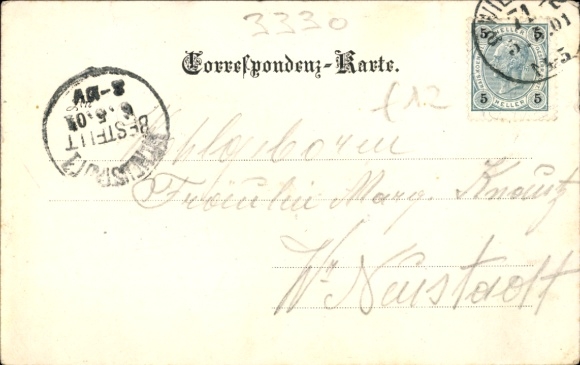 3330
Correspondenz-Karte.
5 5
HELLER
5 5
WIE
71
5 01
BESTELLT
6.5.01
£12
Wohlgeboren
Fräulein Marg. Knautz
Wr Neustadt